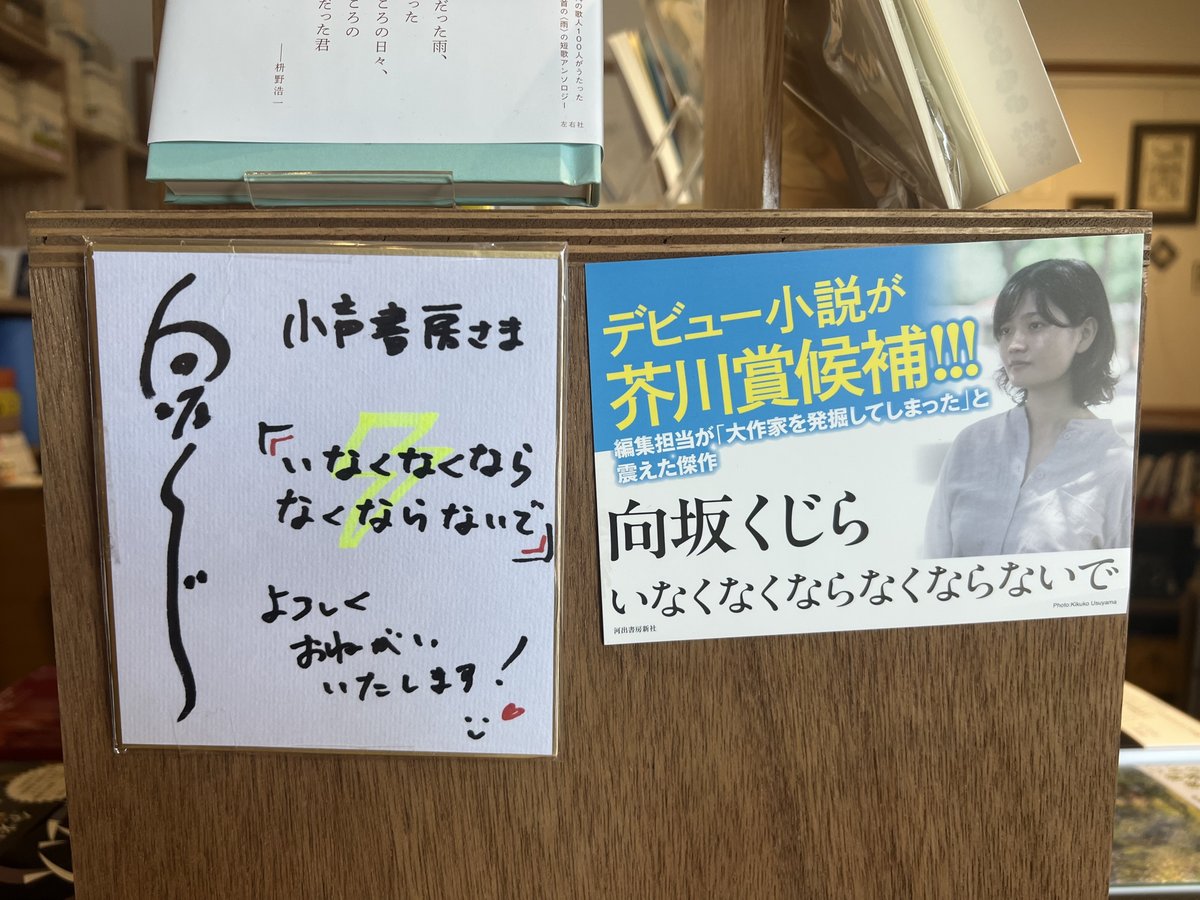 だった雨、
った
ころの
ころの日々、
だった君
――枡野浩一
の歌人100人がうたった
首の〈雨〉の短歌アンソロジー
左右社
小声書房さま
『いなくなくなら
なくならないで』
よろしく
おねがい
いたします!
デビュー小説が
芥川賞候補!!!
編集担当が「大作家を発掘してしまった」と
震えた傑作
向坂くじら
いなくなくならなくならないで
河出書房新社
Photo:Kikuko Usuyama